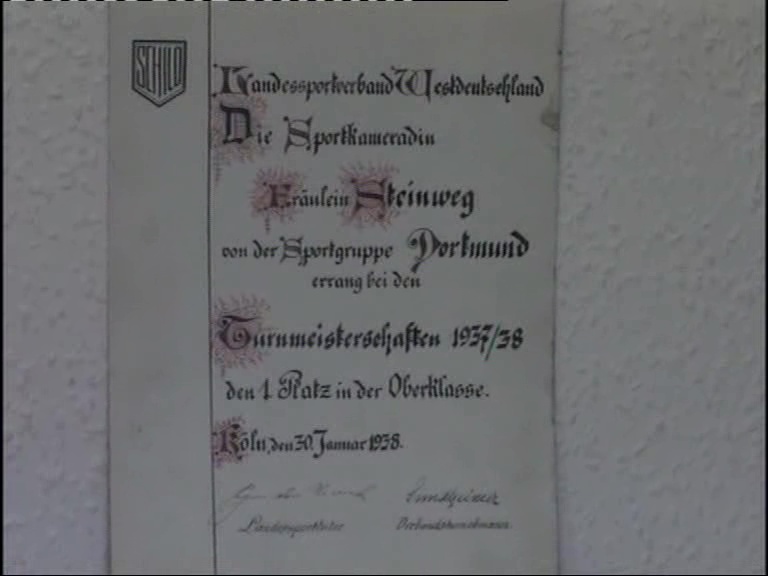 SCHILD
Landessportverband Westdeutschland
Die Sportkameradin
Fräulein Steinweg
von der Sportgruppe Dortmund
errang bei den
Turnmeisterschaften 1937/38
den 1. Platz in der Oberklasse.
Köln, den 30. Januar 1938.
Landessportleiter